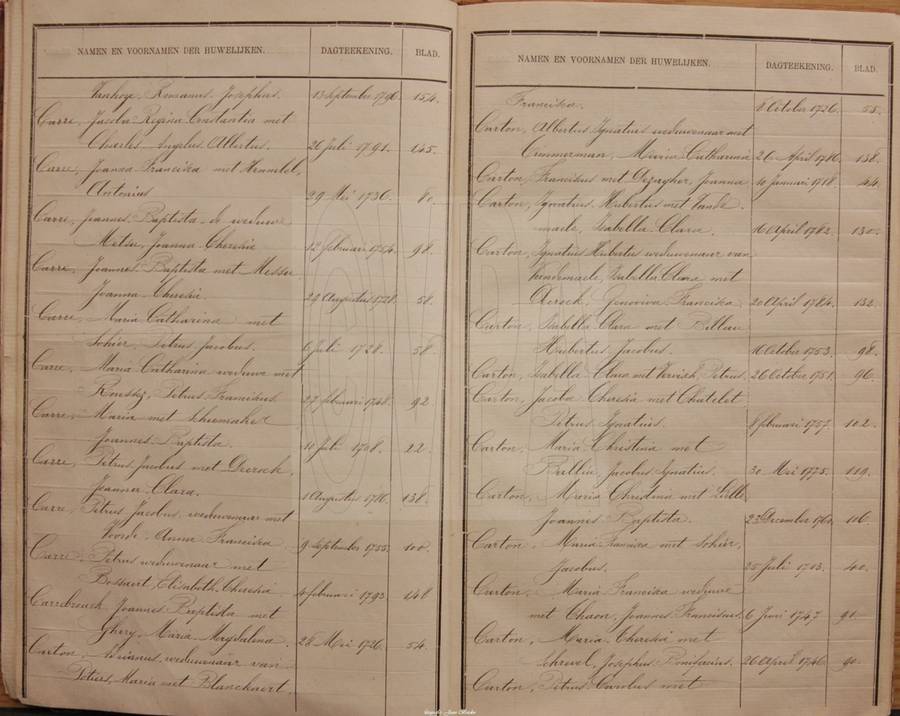 NAMEN EN VOORNAMEN DER HUWELIJKEN. DAGTEEKENING. BLAD.
Romanus Josephus. 13 september 1796 154.
Carre, Jacoba Regina Constantia met
Charles Angelus Albertus. 26 Juli 1791. 145.
Carre, Joanna Franciska met Hemmebel,
Antonius 29 Mei 1736. 80.
Carre, Joannes Baptista de weduwe
Metsu, Joanna Theresia 12 februari 1754. 98.
Carre, Joannes Baptista met Messu
Joanna Theresia. 24 Augustus 1728. 58.
Carre, Maria Catharina met
Sohier, Petrus Jacobus. 6 Juli 1728. 58.
Carre, Maria Catharina weduwe met
Petrus Franciskus 27 februari 1748. 92
Carre, Maria met Schoemaker
Joannes Baptista. 10 Juli 1708. 22.
Carre, Petrus Jacobus met Deersch,
Joanna Clara. 1 Augustus 1786. 138.
Carre, Petrus Jacobus weduwenaar met
Voorde, Anna Franciska 9 September 1755. 100.
Carre, Petrus weduwenaar met
Bossaert, Elisabeth Theresia 4 februari 1793 148
Carrebrouck Joannes Baptista met
Ghery, Maria Magdalena. 28 Mei 1726. 54.
Carton, Adrianus, weduwenaar van
Maria met Blanckaert,
NAMEN EN VOORNAMEN DER HUWELIJKEN. DAGTEEKENING. BLAD.
Franciska. 8 October 1726. 55.
Carton, Albertus Ignatius weduwenaar met
Timmerman, Maria Catharina 26 April 1786. 138.
Carton, Franciskus met Dezagher, Joanna 10 Januari 1718. 44.
Carton, Ignatius Hubertus met Vande
maele, Isabella Clara. 16 April 1782. 130.
Carton, Ignatius Hubertus weduwenaar van
Isabella Clara met
Dersch, Genoviva Franciska 20 April 1784. 132.
Carton, Isabella Clara met Billau
Hubertus Jacobus. 16 October 1753. 98.
Carton, Isabella Clara met Petrus. 26 October 1751. 96.
Carton, Jacoba Theresia met Chatelet
Petrus Ignatius. 8 februari 1757. 102.
Carton, Maria Christina met
Ballin, Jacobus Ignatius. 30 Mei 1775. 119.
Carton, Maria Christina met Lille,
Joannes Baptista. 23 December 1760. 106.
Carton, Maria Francisca met Sohier,
Jacobus. 25 Juli 1713. 40.
Carton, Maria Franciska weduwe
met Joannes Franciscus. 6 Juni 1747 91.
Carton, Maria Theresia met
Schrevel, Josephus Bonifacius. 26 April 1746. 90.
Carton, Petrus Carolus met